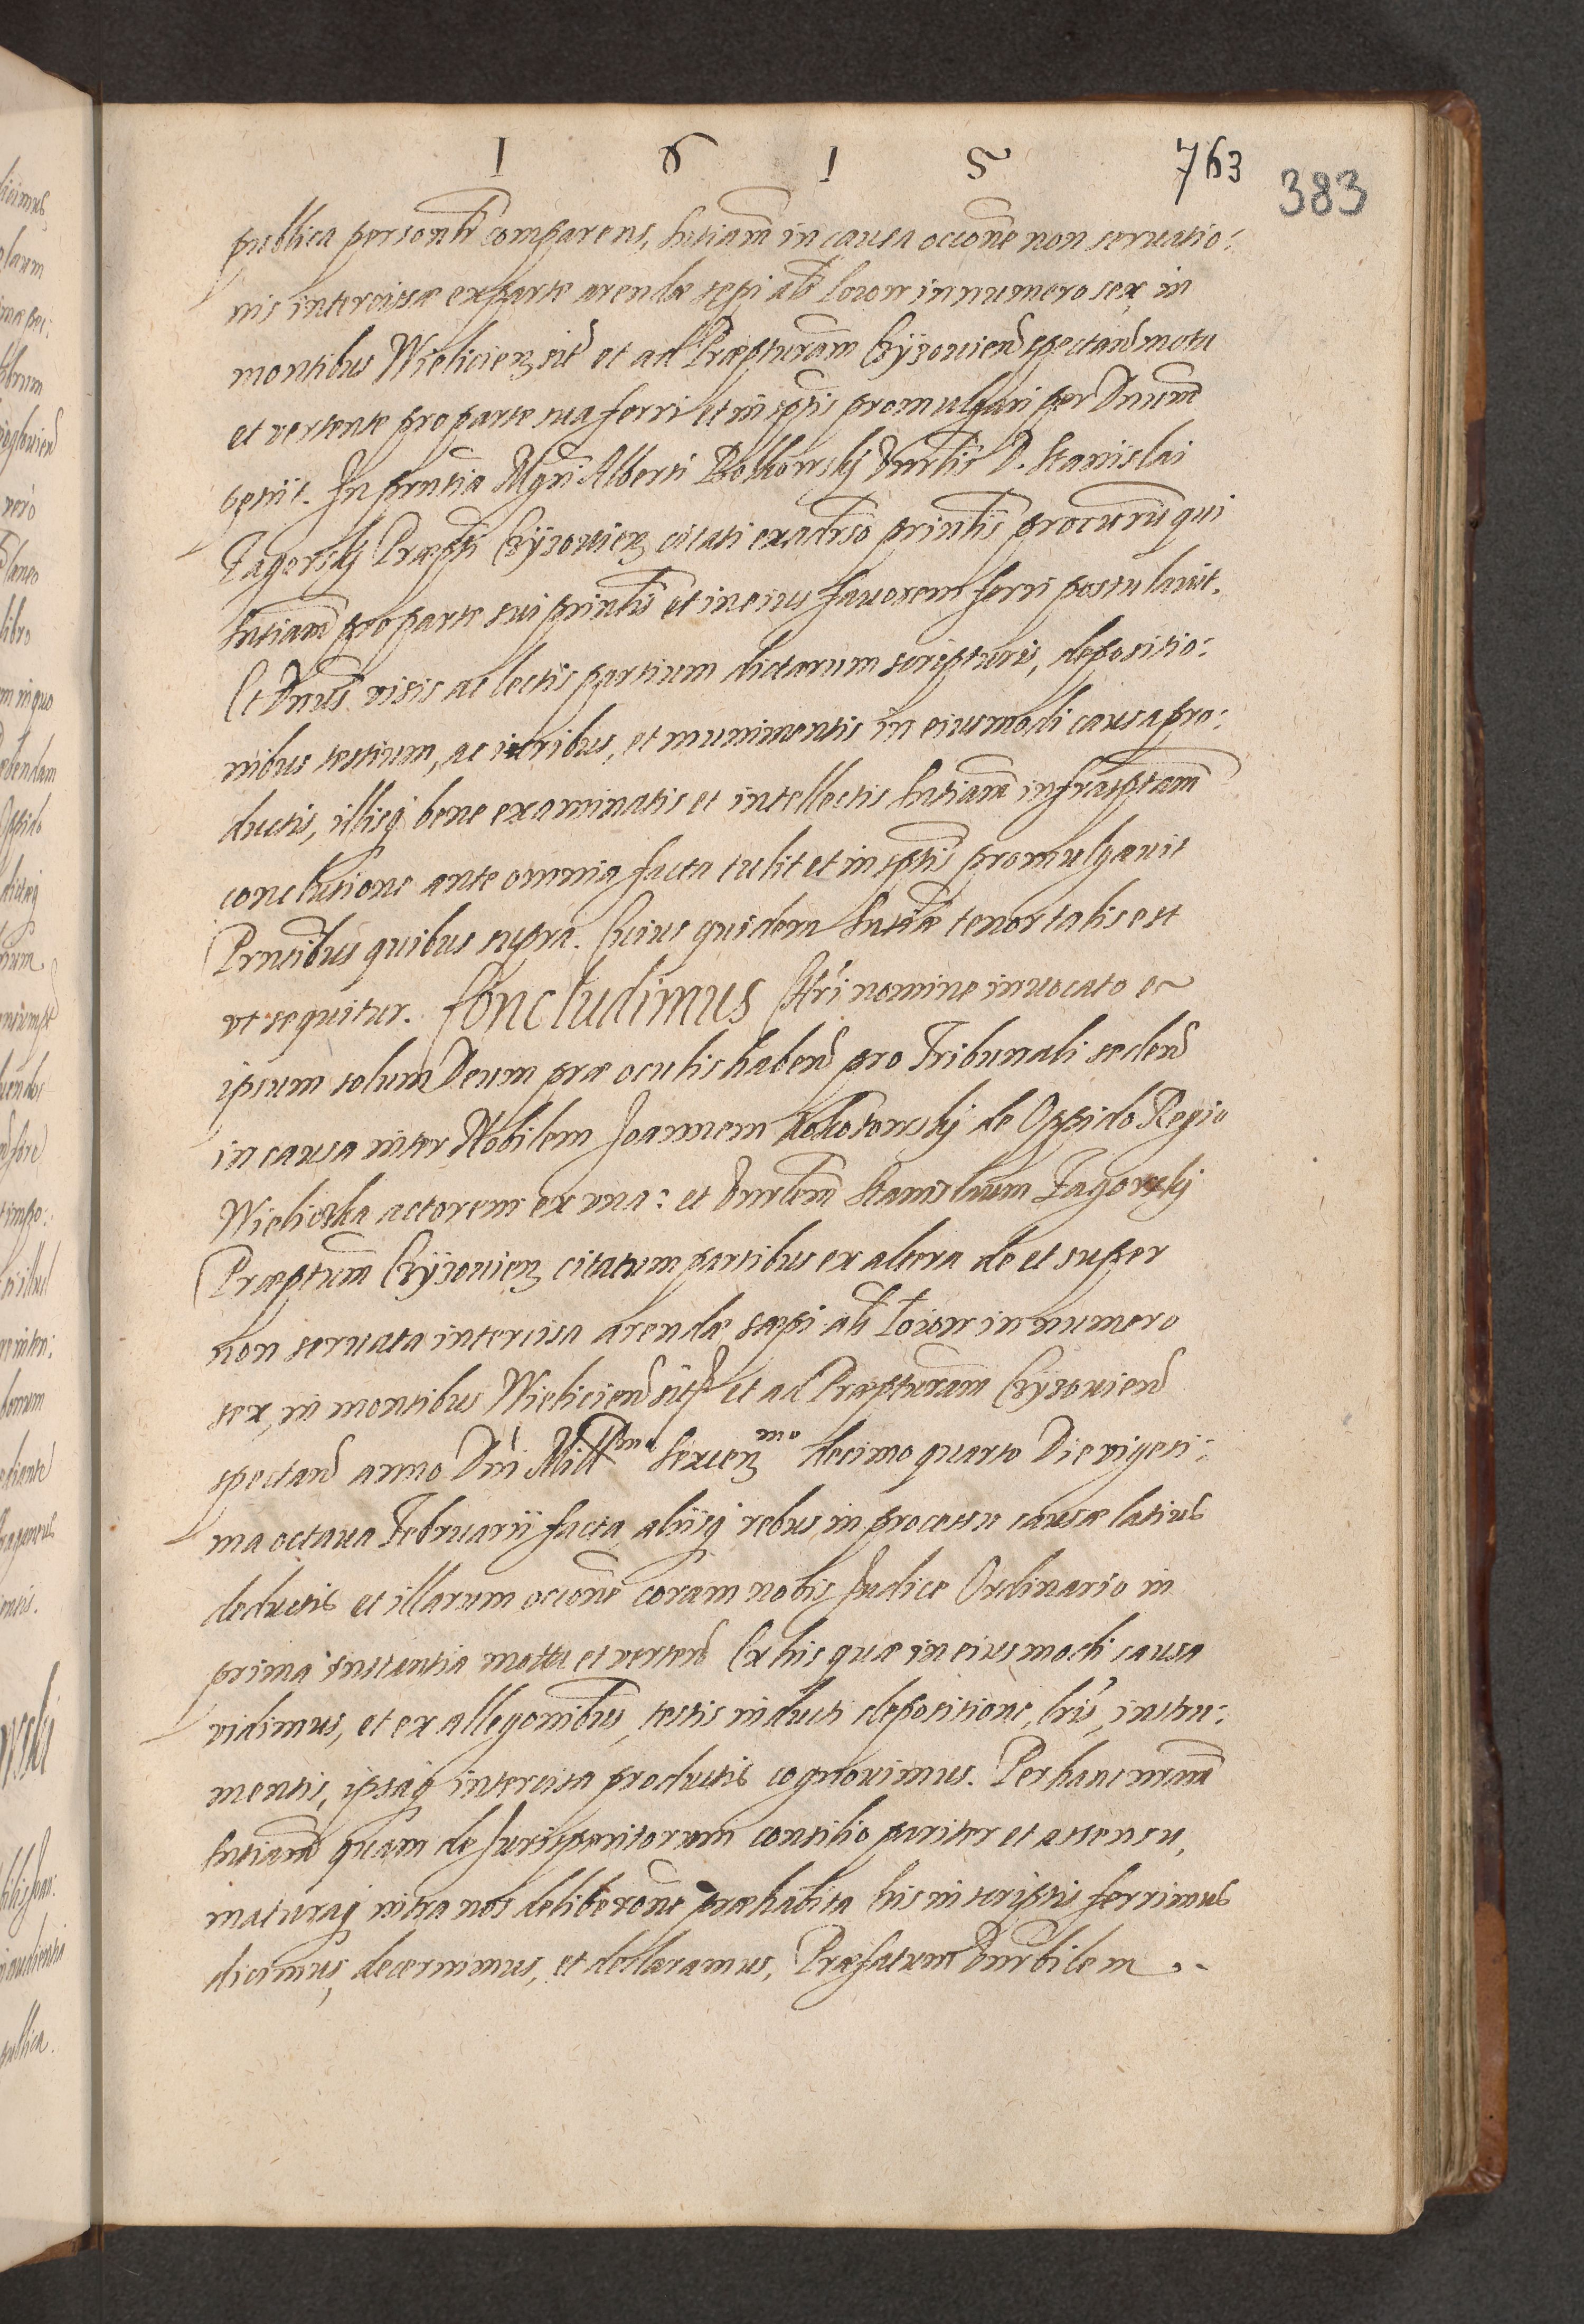 1 6 1 5 763
383
publica personlr comparens, Sntiam in causa occone non seruatio:
nis intercisae ex parte arendae sepi als Loiow in numero sex in
montibus Wieliciens sit et ad Praeptturam Czyżouien spectan motu
et vertente pro parte sua ferri et in sptis promulgari per Dnum
petiit. In pntia Mgri Alberti Bolkowskj Dnrlis D. Stanislai
Zagorskj Praepti Czyżouien citati ex aduerso prinlis procuris qui
Sntiam pro parte sui prinlis et in eius fauorem ferri postulauit.
Et Dnus visis ac lectis partium dictarum scripturis, depositio:
nibus testium, ac iuribus, et munimentis in eiusmodi causa pro:
ductis, illisq bene examinatis et intellectis Sntiam infrasptam
conclusione ante omnia facta tulit et in sptis promulgauit
Prntibus quibus supra. Cuius quidem Sntiae tenor talis est
vt sequitur. Concludimus Chri nomine inuocato et
ipsum solum Deum prae oculis haben pro Tribunali seden
in causa inter Nobilem Joannem Kokotowskj de Oppido Regio
Wieliczka actorem ex vna: et Dnrlem Stanislaum Zagorskj
Praeptum Czyżouien citatum partibus ex altera de et super
non seruata intercisa arendae saepi als Łoiow in numero
sex, in montibus Wielicien sit et ad Praepturam Czyżouien
spectan anno Dni Millmo Sexcenmo decimo quarto Die vigesi:
ma octaua Februarii facta, aliisq rebus in processu causae latius
deductis et illarum occone coram nobis Judice Ordinario in
prima instantia motta et verten Ex his quae in eiusmodi causa
vidimus, et ex allegonibus, testis inducti depositione, lris, instru:
mentis, ipsaq intercisa productis cognouimus. Per hanc nram
Sntiam quam de Jurisperitorum consilio pariter et assensu,
maturaq intra nos deliberone praehabita his in scriptis ferrimus
dicimus, decernimus, et declaramus, Praefatum Dnrbilem